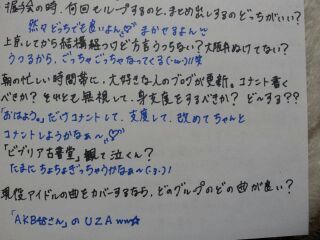 握手会の時、何回もループするのと、まとめ出しするのどっちがいい?
断々どっちでも良いよん まかせるよん
上京してから結構経つけど方言うつらない?大阪弁ぬけてない?
うつるから、ごっちゃごっちゃなってくる(・ω・)/笑
朝の忙しい時間帯に、大好きな人のブログが更新。コメント書く
べきか?それとも無視して、身支度をするべきか?ど〜する??
「おはよう。」だけコメントして、支度して、改めてちゃんと
コメントしようかなぁ〜
「ビブリア古書堂」観て泣くん?
たまにちょちょぎっちゃうかなぁ〜(·з·)
現役アイドルの曲をカバーするなら、どのグループのどの曲が良い?
「AKB48さん」のUZA ww☆